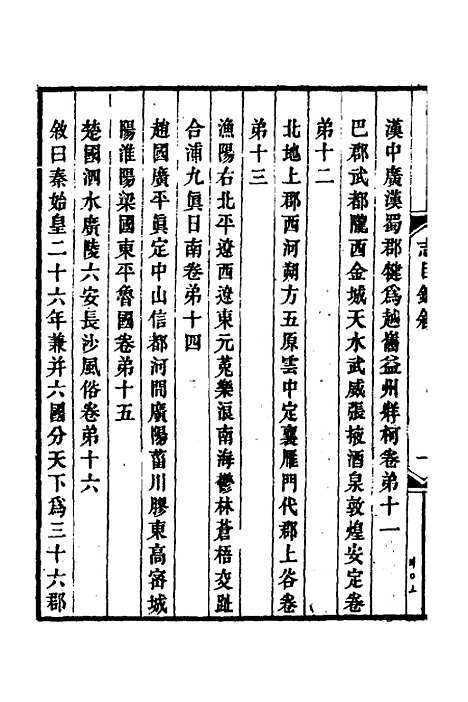 漢中廣漢蜀郡犍爲越嶲益州牂柯卷弟十一
巴郡武都隴西金城天水武威張掖酒泉敦煌安定卷
弟十二
北地上郡西河朔方五原雲中定襄雁門代郡上谷卷
弟十三
漁陽右北平遼西遼東元菟樂浪南海鬱林蒼梧交趾
合浦九眞日南卷弟十四
趙國廣平眞定中山信都河閒廣陽菑川膠東高密城
陽淮陽梁國東平魯國卷弟十五
楚國泗水廣陵六安長沙風俗卷弟十六
敘曰秦始皇二十六年兼并六國分天下爲三十六郡
志目錄
一